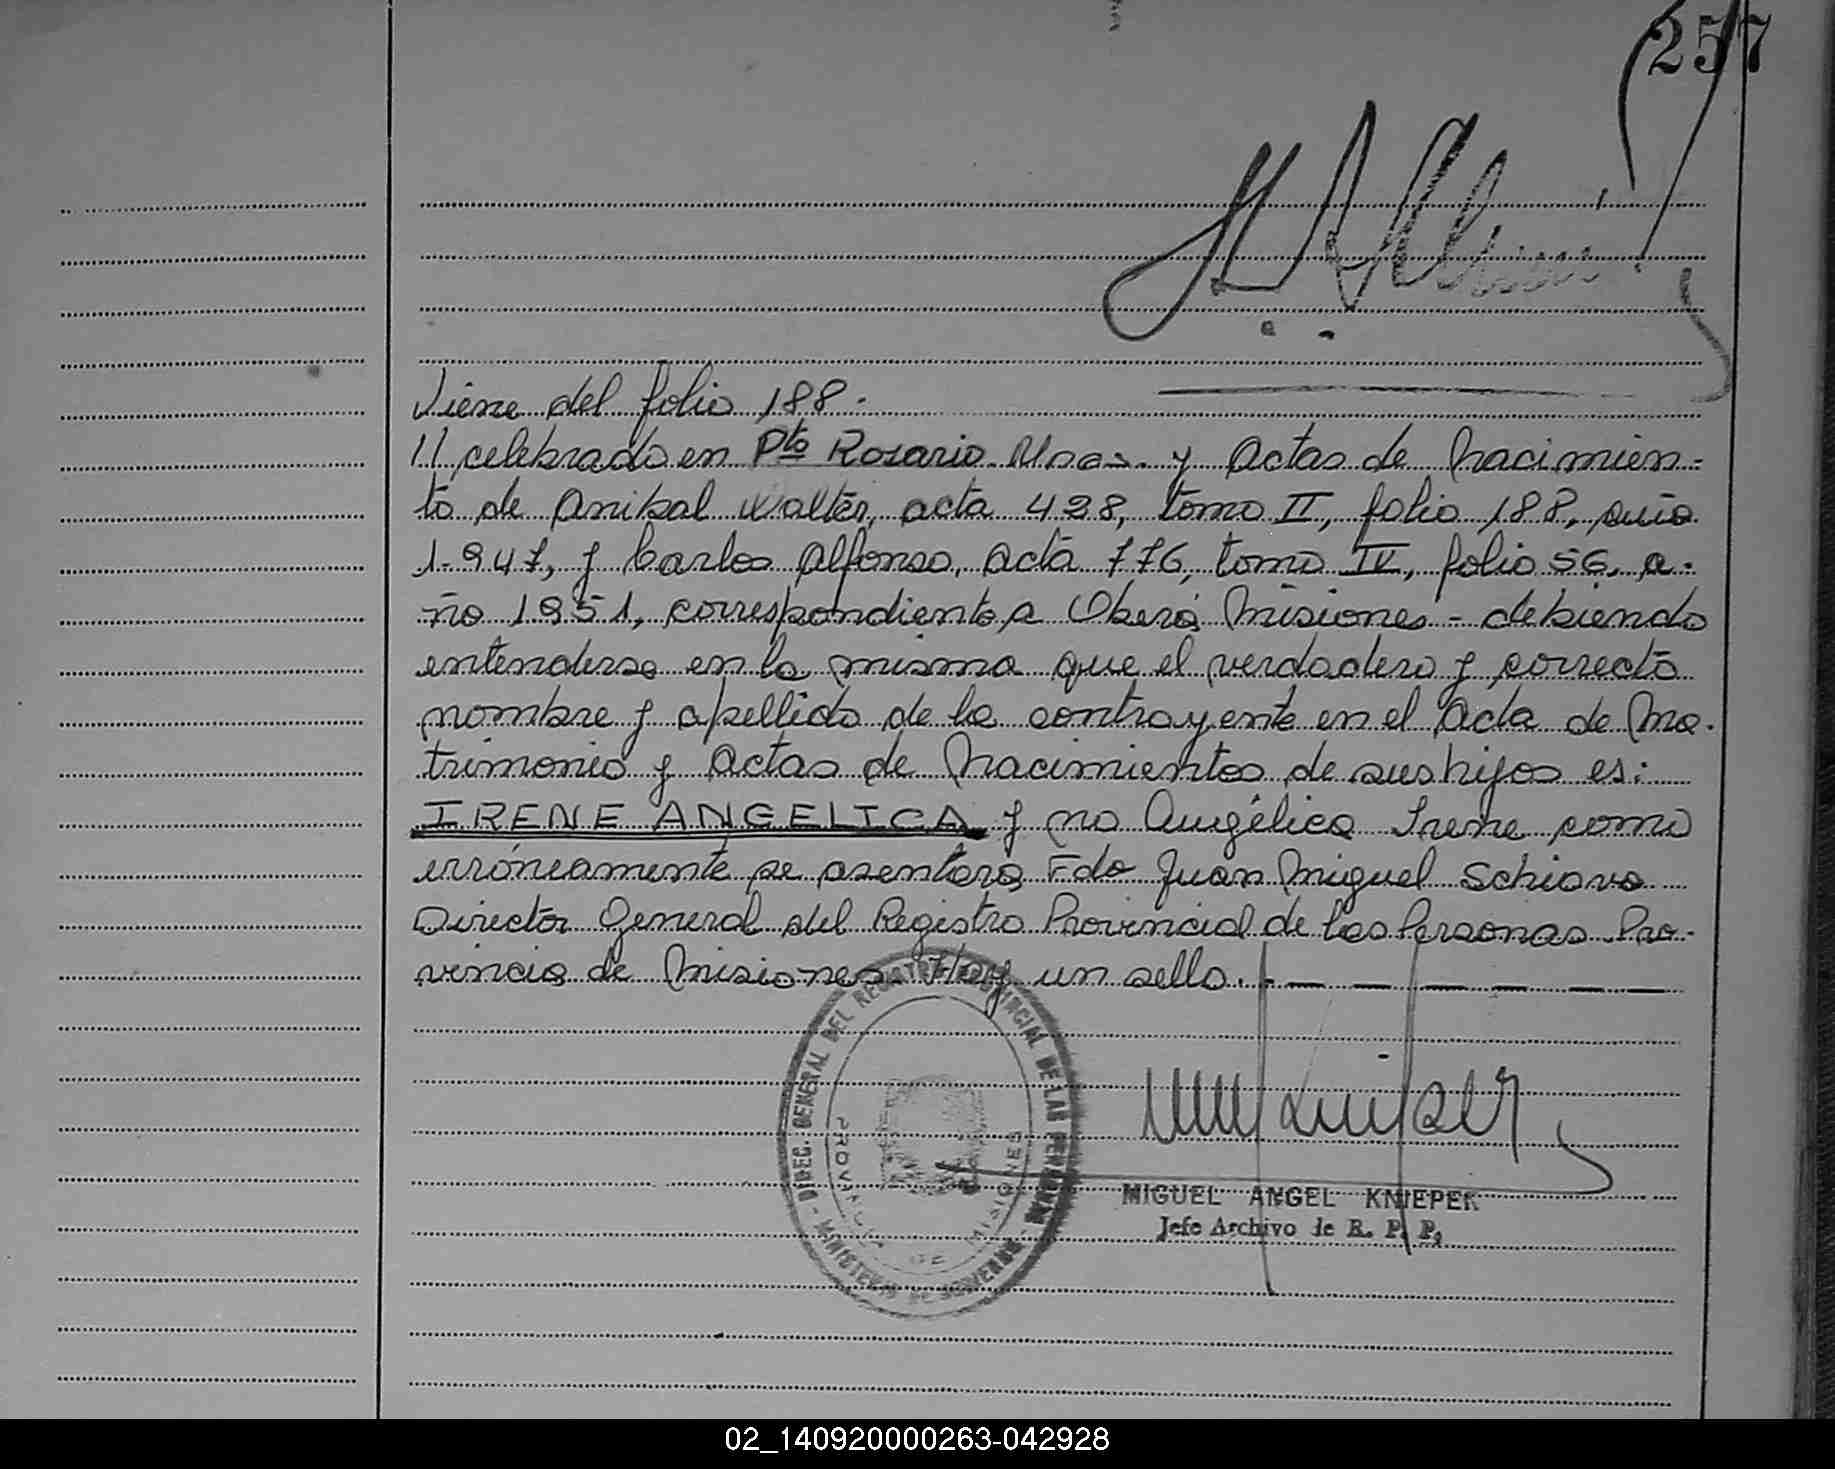 257
Viene del folio 188.
// celebrado en Pto Rosario Mnes. y Actas de Nacimien-
to de Anibal Walter, acta 428, tomo II, folio 188, año
1.947, y Carlos Alfonso, acta 776, tomo IV, folio 56, a-
ño 1951, correspondiente a Oberá Misiones - debiendo
entenderse en la misma que el verdadero y correcto
nombre y apellido de la contrayente en el Acta de Ma-
trimonio y Actas de Nacimientos de sus hijos es:
IRENE ANGELICA y no Angélica Irene como
erróneamente se asentara, Fdo Juan Miguel Schiavo
Director General del Registro Provincial de las Personas Pro-
vincia de Misiones. Hay un sello. - - - - - - -
DIREC. GENERAL DEL REGISTRO PROVINCIAL DE LAS PERSONAS - MINISTERIO DE GOBIERNO -
PROVINCIA DE MISIONES
MIGUEL ANGEL KNIEPER
Jefe Archivo de R. P. P.
02_140920000263-042928